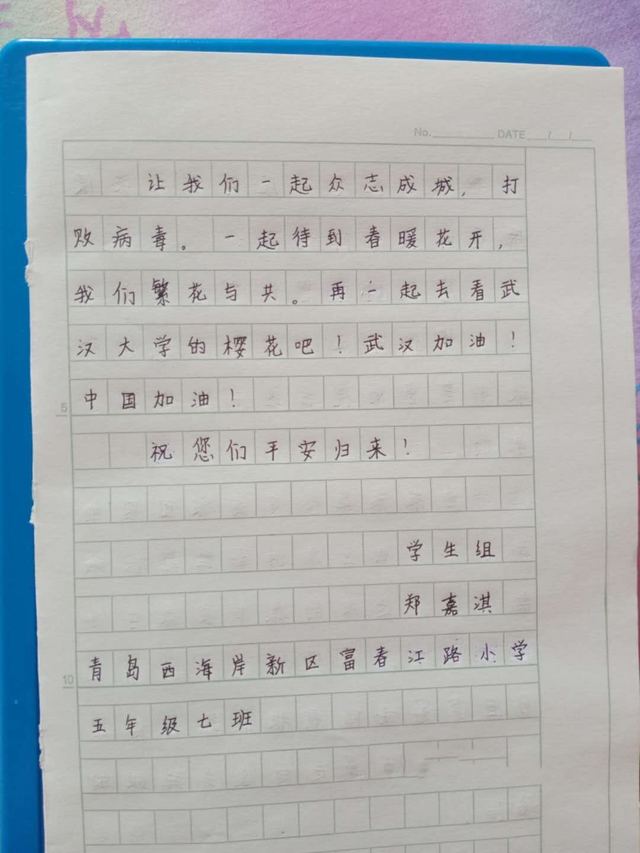 No. DATE / /
让我们一起众志成城，打
败病毒。一起待到春暖花开，
我们繁花与共。再一起去看武
汉大学的樱花吧！武汉加油！
5
中国加油！
祝您们平安归来！
学生组
郑嘉淇
青岛西海岸新区富春江路小学
10
五年级七班